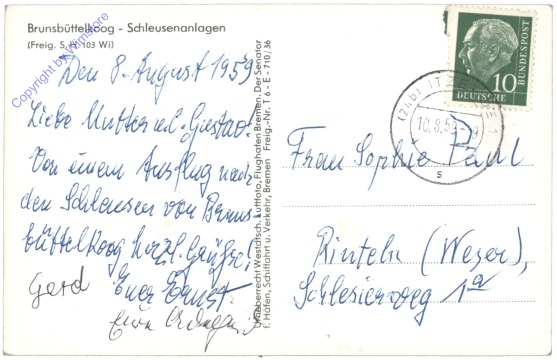 Brunsbüttelkoog - Schleusenanlagen
(Freig. S. H. 103 Wi)
Den 8. August 1959
Liebe Mutter u. l. Gustav.
Von einem Ausflug nach
den Schleusen von Bruns-
büttelkoog herzl. Grüße!
Gerd Euer Ernst.
Urheberrecht Westdtsch. Luftfoto, Flughafen Bremen. Der Senator
f. Häfen, Schiffahrt u. Verkehr, Bremen Freig.-Nr. T 6 - E - 710/36
10
DEUTSCHE
BUNDESPOST
(24b)
10.8.59
s
Frau Sophie Paul
Rinteln (Weser),
Schlesierweg 1a
Copyright by Wimstore